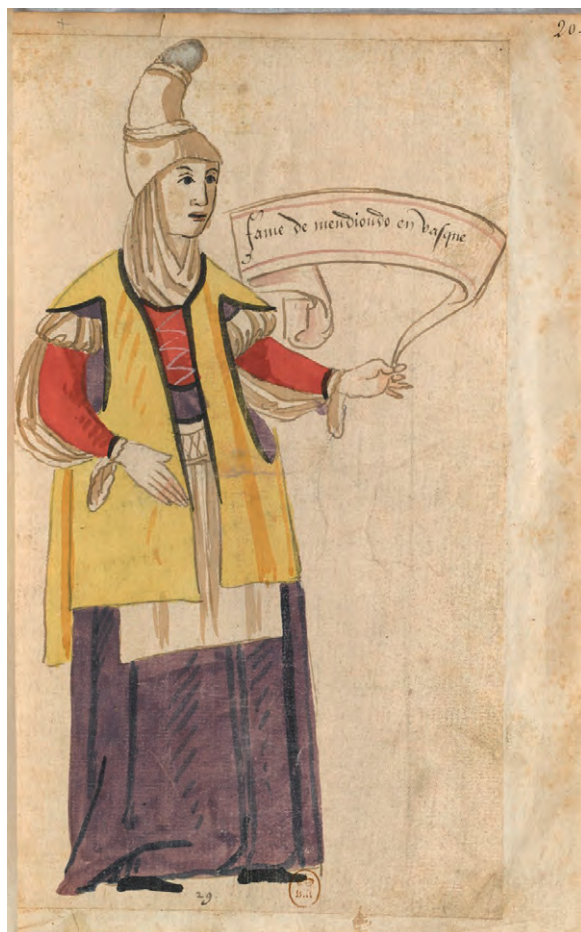 20.
fame de mendiondo en basque
29